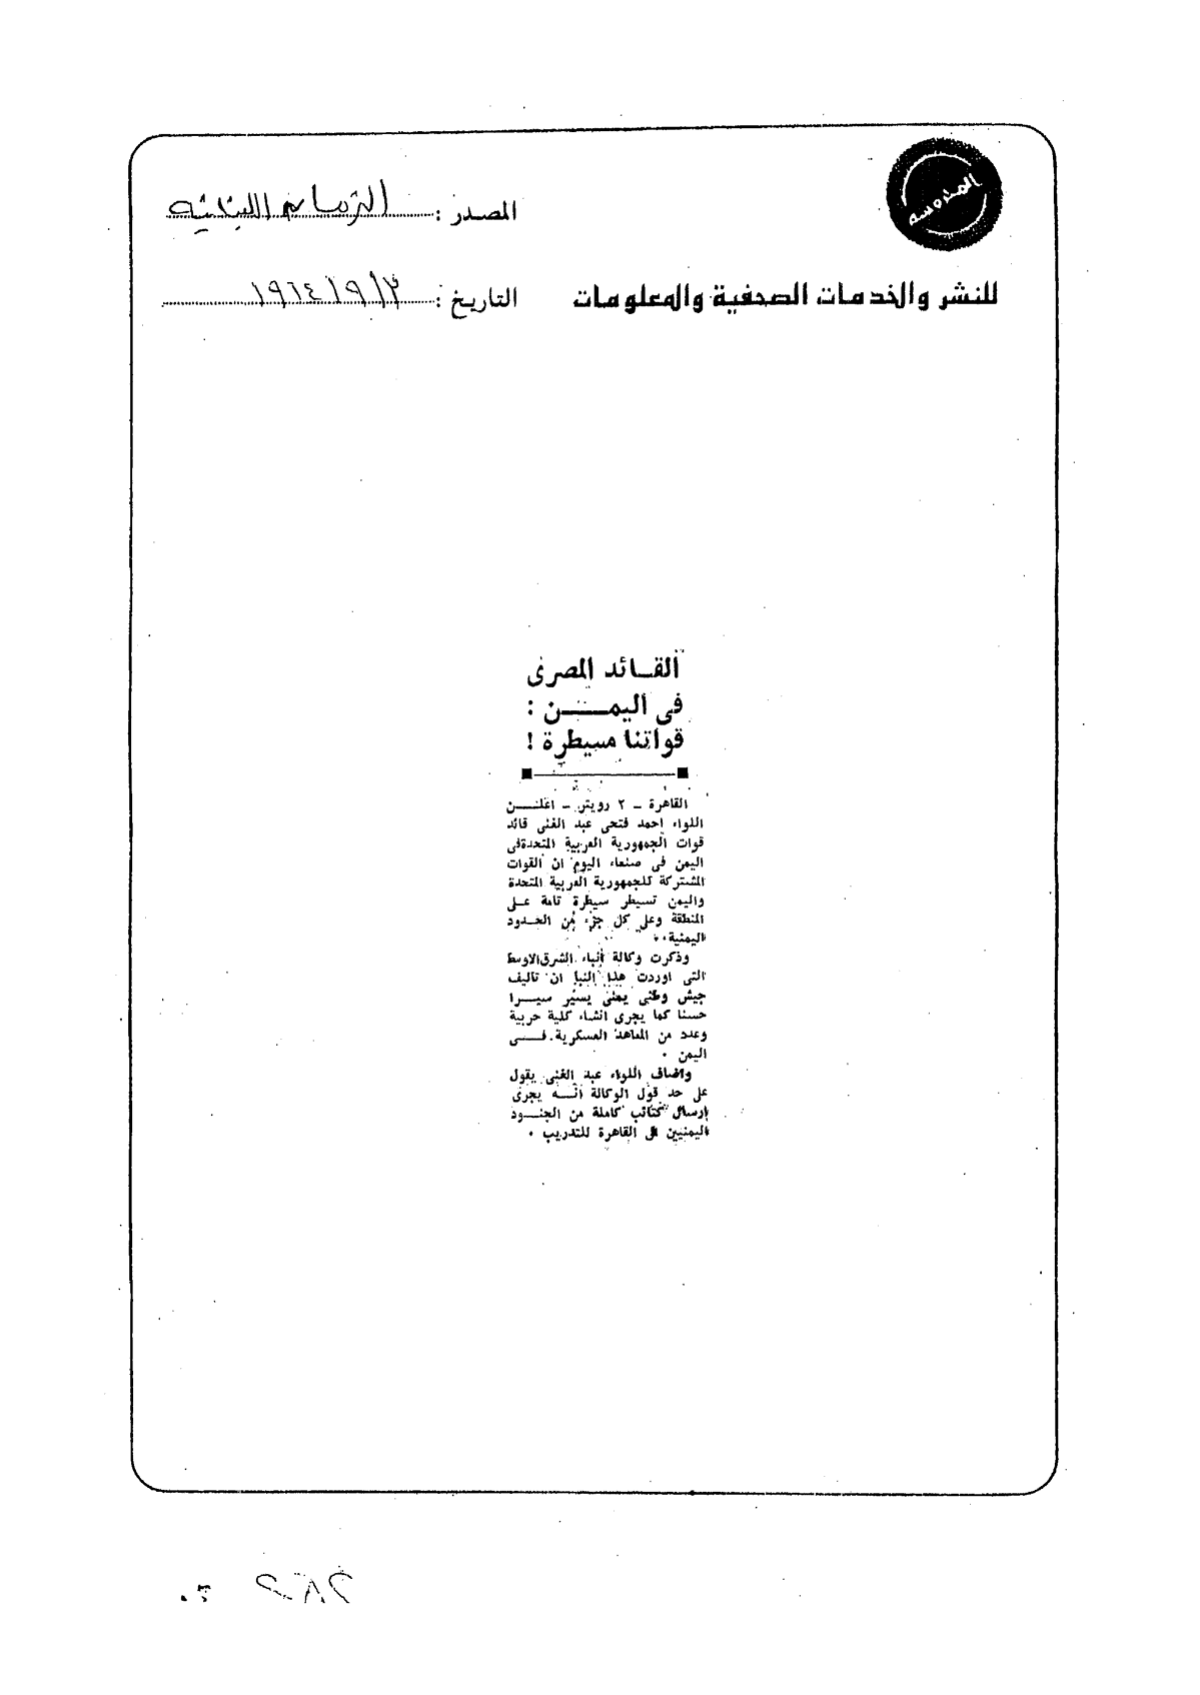 المصدر :
للنشر والخدمات الصحفية والمعلومات
التاريخ : ١٩٦٤/٩/٣
القائد المصرى
فى اليمن :
قواتنا مسيطرة !
القاهرة - ٢ رويتر - اعلن
اللواء احمد فتحى عبد الغنى قائد
قوات الجمهورية العربية المتحدة فى
اليمن فى صنعاء اليوم ان القوات
المشتركة للجمهورية العربية المتحدة
واليمن تسيطر سيطرة تامة على
المنطقة وعلى كل جزء من الحدود
اليمنية .
وذكرت وكالة أنباء الشرق الاوسط
التى اوردت هذا النبا ان تاليف
جيش وطنى يمنى يسير سيرا
حسنا كما يجرى انشاء كلية حربية
وعدد من المعاهد العسكرية فى
اليمن .
واضاف اللواء عبد الغنى يقول
على حد قول الوكالة انه يجرى
إرسال كتائب كاملة من الجنود
اليمنيين الى القاهرة للتدريب .